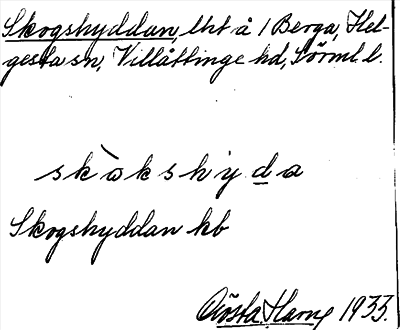 Skogshyddan, lht å 1 Berga, Hel-
gesta sn, Villåttinge hd, Sörml. l.
skòkshyda
Skogshyddan kb
Gösta Harne 1933.